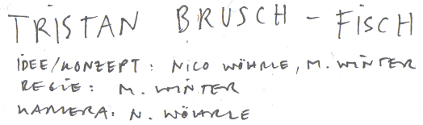 TRISTAN BRUSCH - FISCH
IDEE/KONZEPT: NICO WÖHRLE, M. WINTER
REGIE: M. WINTER
KAMERA: N. WÖHRLE